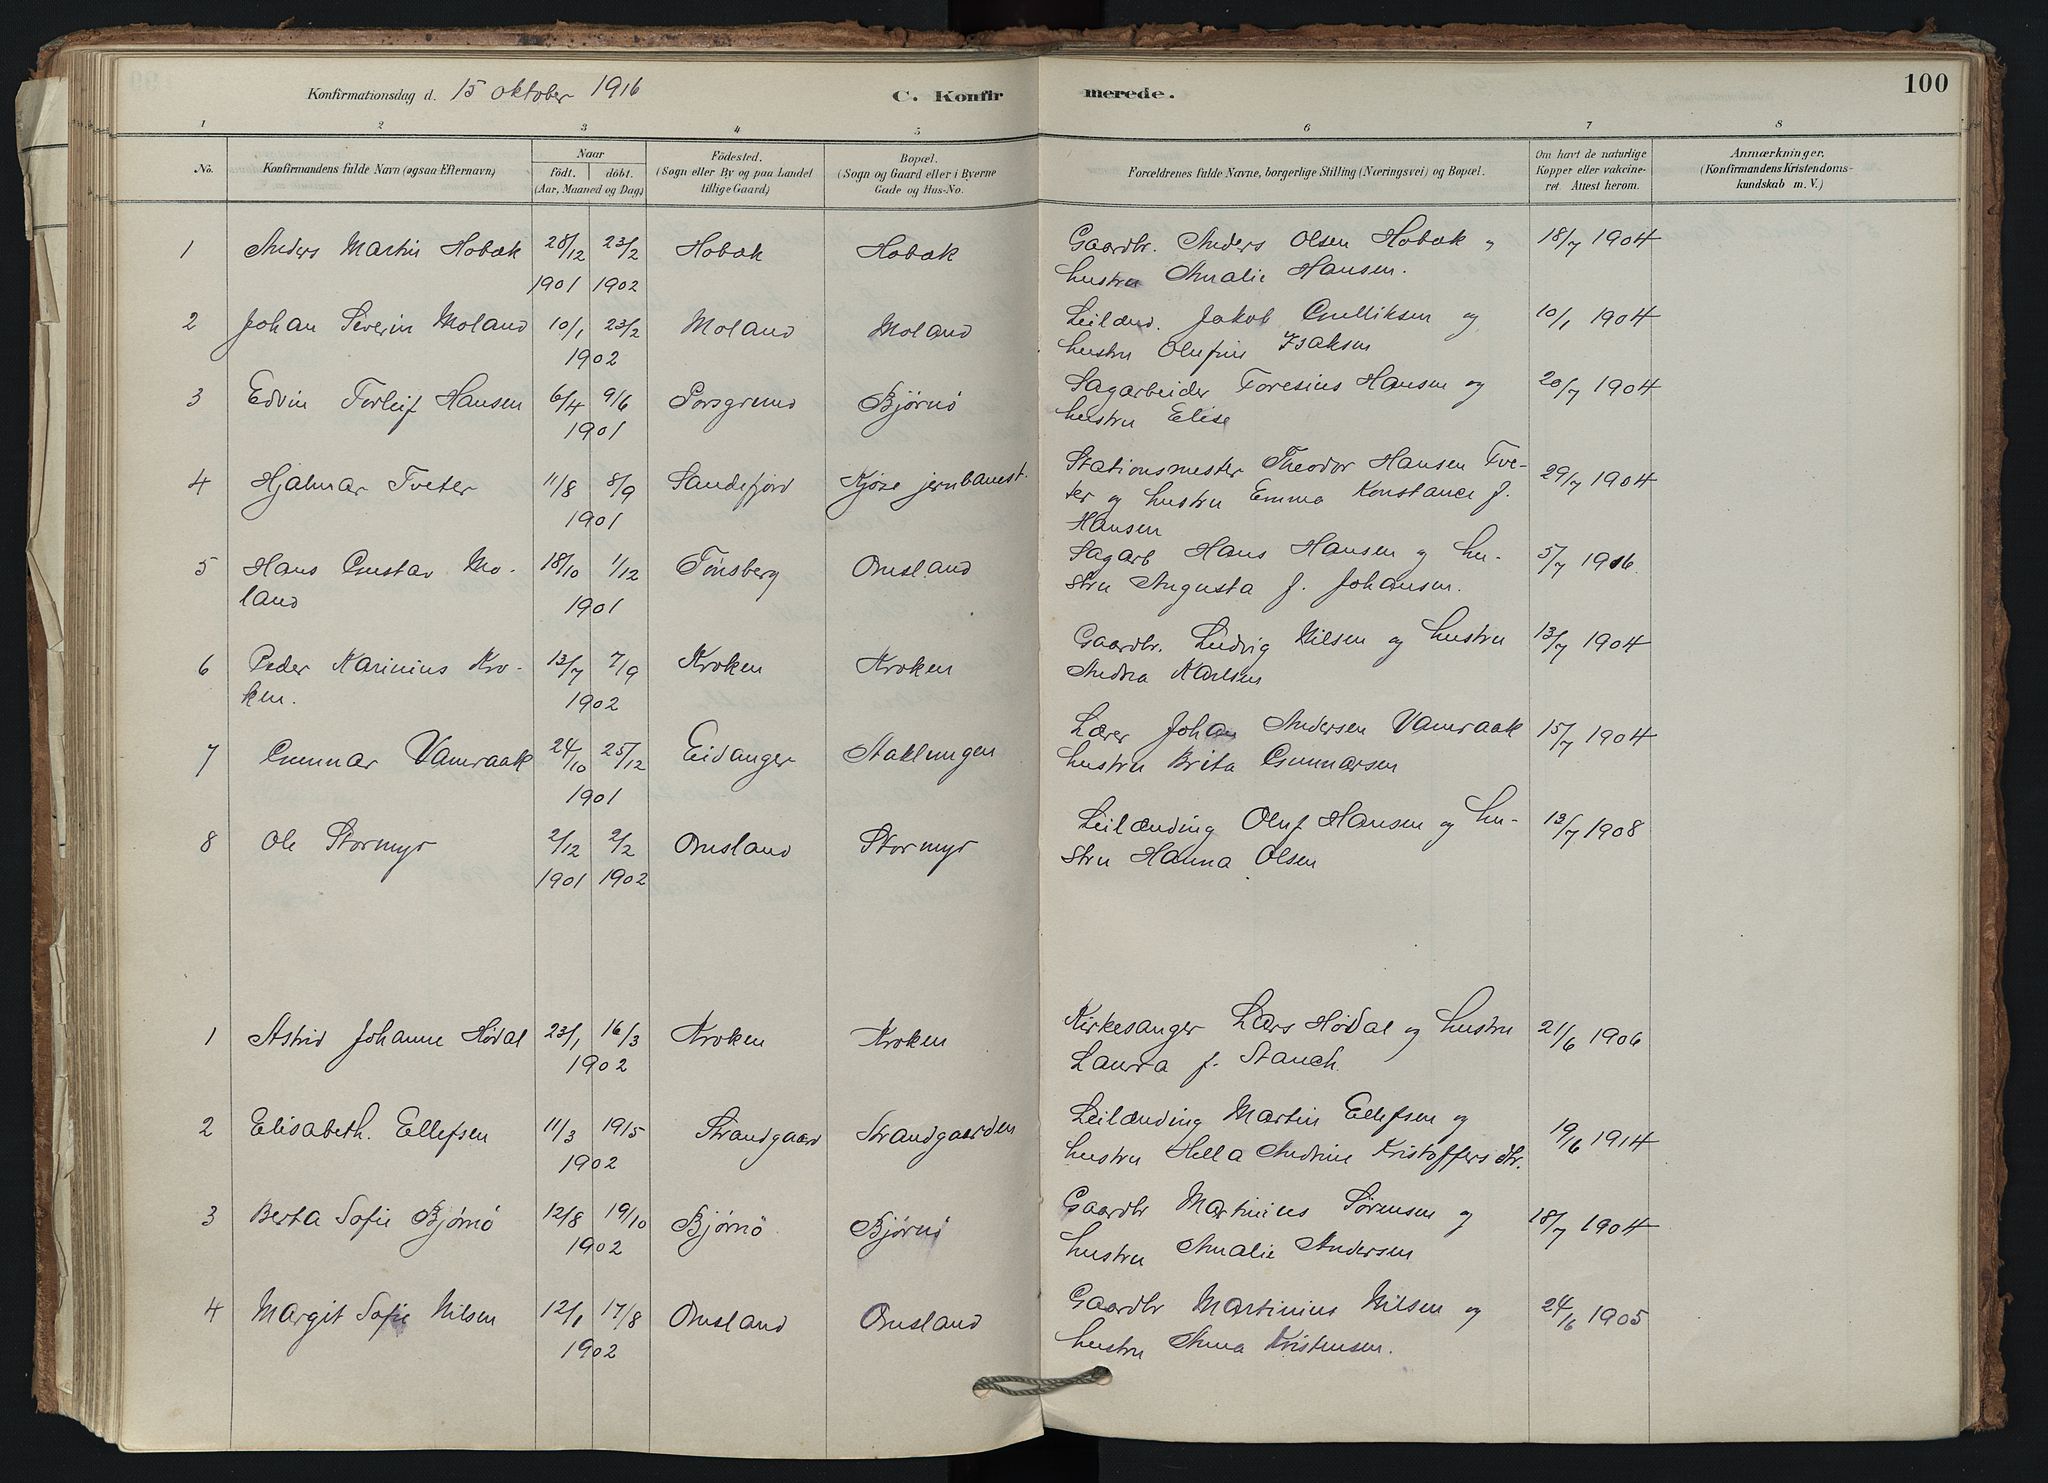 Konfirmationsdag d. 15 oktober 1916
C. Konfirmerede.
100
1 2 3 4 5 6 7 8
No.
Konfirmandens fulde Navn (ogsaa Efternavn)
Naar
født. døbt.
(Aar, Maaned og Dag)
Fødested.
(Sogn eller By og paa Landet
tillige Gaard)
Bopæl.
(Sogn og Gaard eller i Byerne
Gade og Hus-No.
Forældrenes fulde Navne, borgerlige Stilling (Næringsvei) og Bopæl.
Om havt de naturlige
Kopper eller vakcine-
ret. Attest herom.
Anmærkninger.
(Konfirmandens Kristendoms-
kundskab m. V.)
1 Anders Martin Hobæk 28/12 1901 23/2 1902 Hobæk Hobæk Gaardbr. Anders Olsen Hobæk og 18/7 1904
hustru Amalie Hansen.
2 Johan Severin Moland 10/1 23/2 Moland Moland Leilænd. Jakob Gulliksen og 10/1 1904
1902 hustru Olufine Isaksen
3 Edvin Torleif Hansen 6/4 9/6 Porsgrund Bjørnø Sagarbeider Toresius Hansen og 20/7 1904
1901 hustru Elise
4 Hjalmar Tveter 11/8 8/9 Sandefjord Kjøse jernbanest. Stationsmester Theodor Hansen Tve-
1901 ter og hustru Emma Konstance f. 29/7 1904
Hansen
5 Hans Gustav Mo- 18/10 1/12 Tønsberg Omsland Sagarb Hans Hansen og hu- 5/7 1916.
land 1901 stru Augusta f. Johansen.
6 Peder Karinius Kro- 13/7 7/9 Kroken Kroken Gaardbr. Ludvig Nilsen og hustru 13/7 1904
ken. 1902 Andrea Karlsen
7 Gunnar Vamraak 24/10 25/12 Eidanger Stallungen Lærer Johan Andersen Vamraak 15/7 1904
1901 hustru Brita Gunnarsen
8 Ole Stormyr 2/12 2/2 Omsland Stormyr Leilænding Oluf Hansen og hu- 13/7 1908
1901 1902 stru Hanna Olsen
1 Astrid Johanne Hødal 23/1 16/3 Kroken Kroken Kirkesanger Lars Hødal og hustru 21/6 1906
1902 Laura f. Stauch.
2 Elisabeth. Ellefsen 11/3 19/5 Strandgaard Strandgaarden Leilænding Martin Ellefsen og 19/6 1914
1902 hustru Hella Andrine Kristoffersdtr.
3 Berta Sofie Bjørnø 12/8 19/10 Bjørnø Bjørnø Gaardbr Martinius Sørensen og 18/7 1904
1902 hustru Amalie Andersen
4 Margit Sofie Nilsen 12/1 17/8 Omsland Omsland Gaardbr Martinius Nilsen og 24/6 1905
1902 hustru Anna Kristensen.